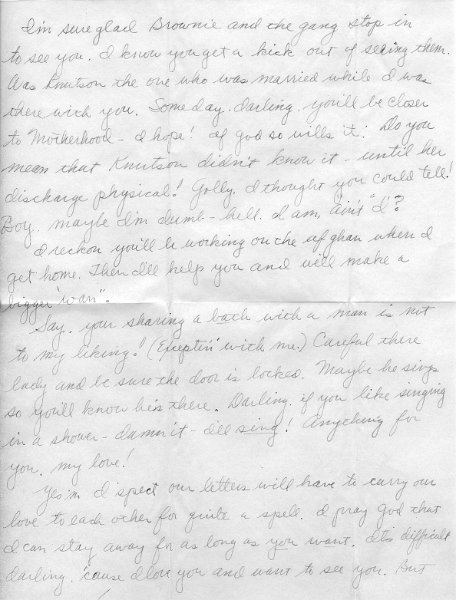 I'm sure glad Brownie and the gang stop in
to see you. I know you get a kick out of seeing them.
Was Knutson the one who was married while I was
there with you. Some day, darling, you'll be closer
to Motherhood - I hope! If god so wills it. Do you
mean that Knutson didn't know it - until her
discharge physical! Golly, I thought you could tell!
Boy, maybe I'm dumb - hell, I am, ain't "I"?
I reckon you'll be working on the afghan when I
get home. Then I'll help you and will make a
bigger "wan".
Say, you sharing a bath with a man is not
to my liking! (Exceptin' with me) Careful there
lady and be sure the door is locked. Maybe he sings
so you'll know he's there. Darling, if you like singing
in a shower - damn it - I'll sing! Anything for
you, my love!
Yes'm I spect our letters will have to carry our
love to each other for quite a spell. I pray god that
I can stay away for as long as you want. It's difficult
darling, 'cause I love you and want to see you. But